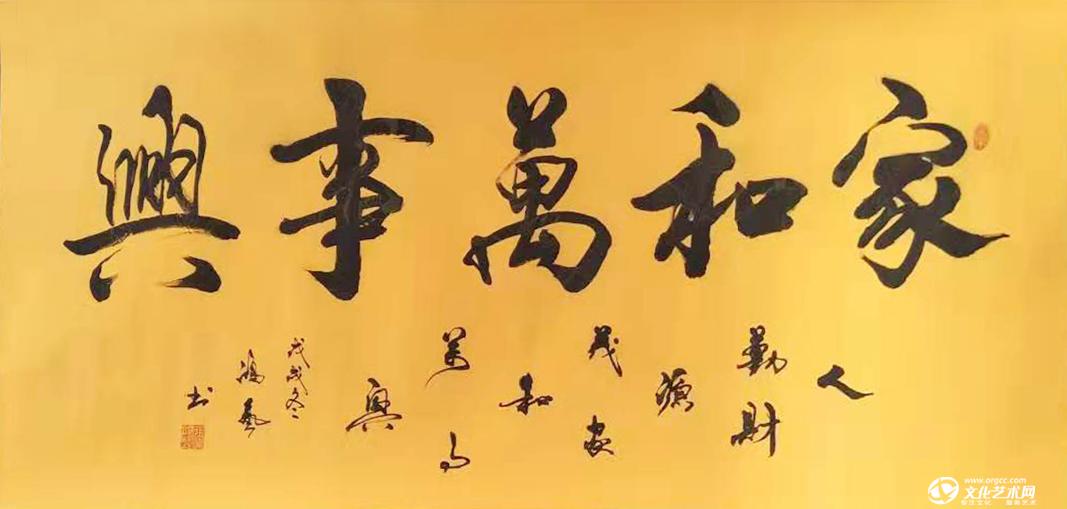 家和萬事興
人勤財源茂家和萬事興
戊戌冬
鴻藝
书
www.orgcc.com
文化艺术网